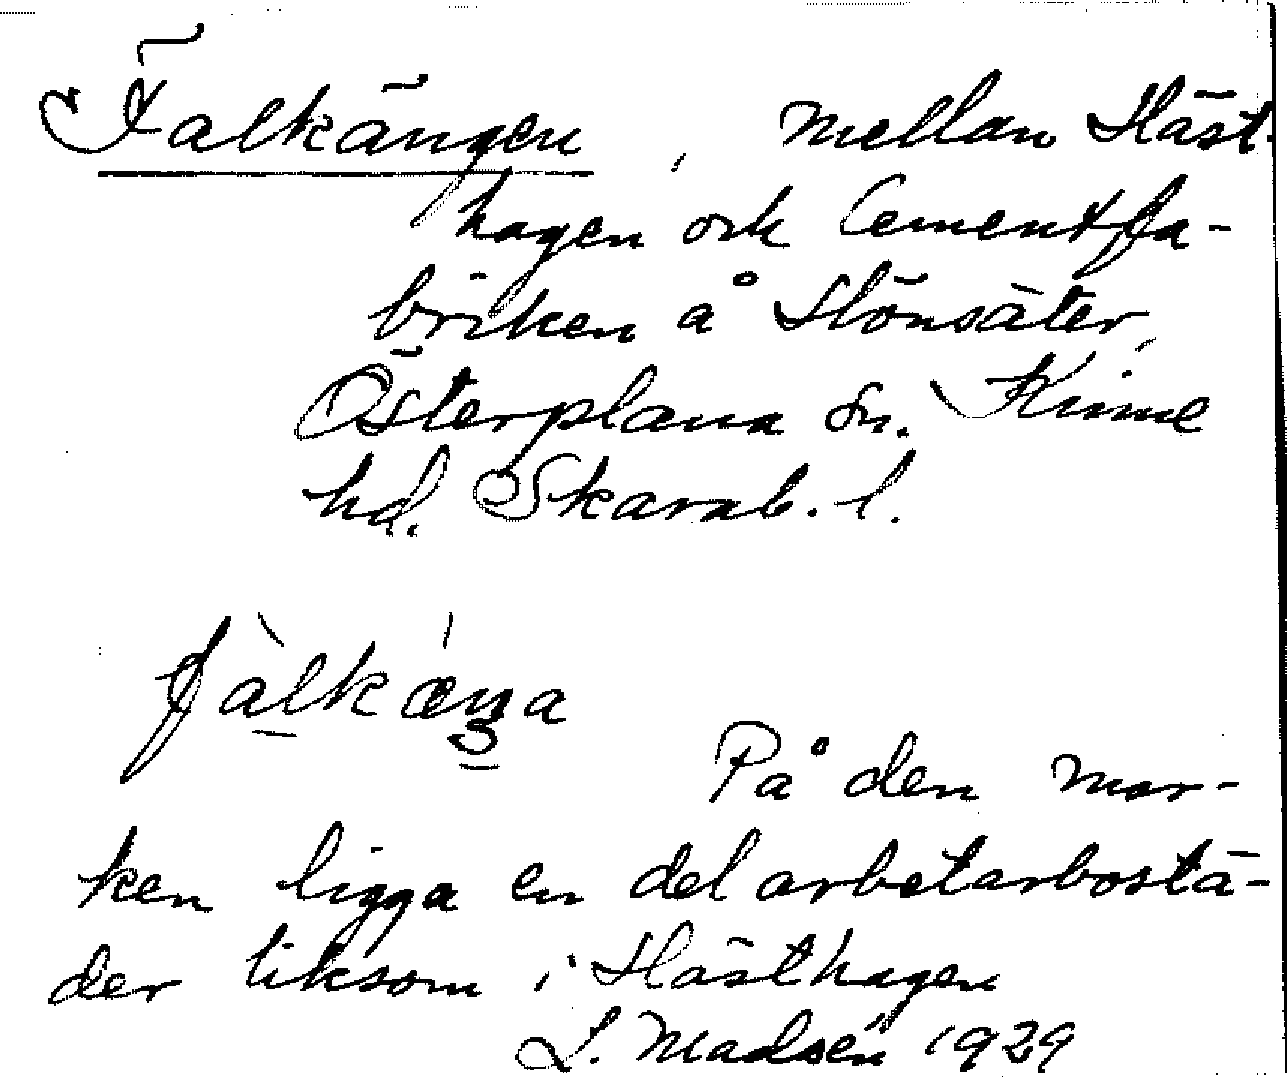 Falkängen, mellan Häst-
hagen och Cementfa-
briken å Hönsäter,
Österplana sn. Kinne
hd. Skarab. l.
fàlkæŋa
På den mar-
ken ligga en del arbetarbostä-
der liksom i Hästhagen
L. Madsén 1929